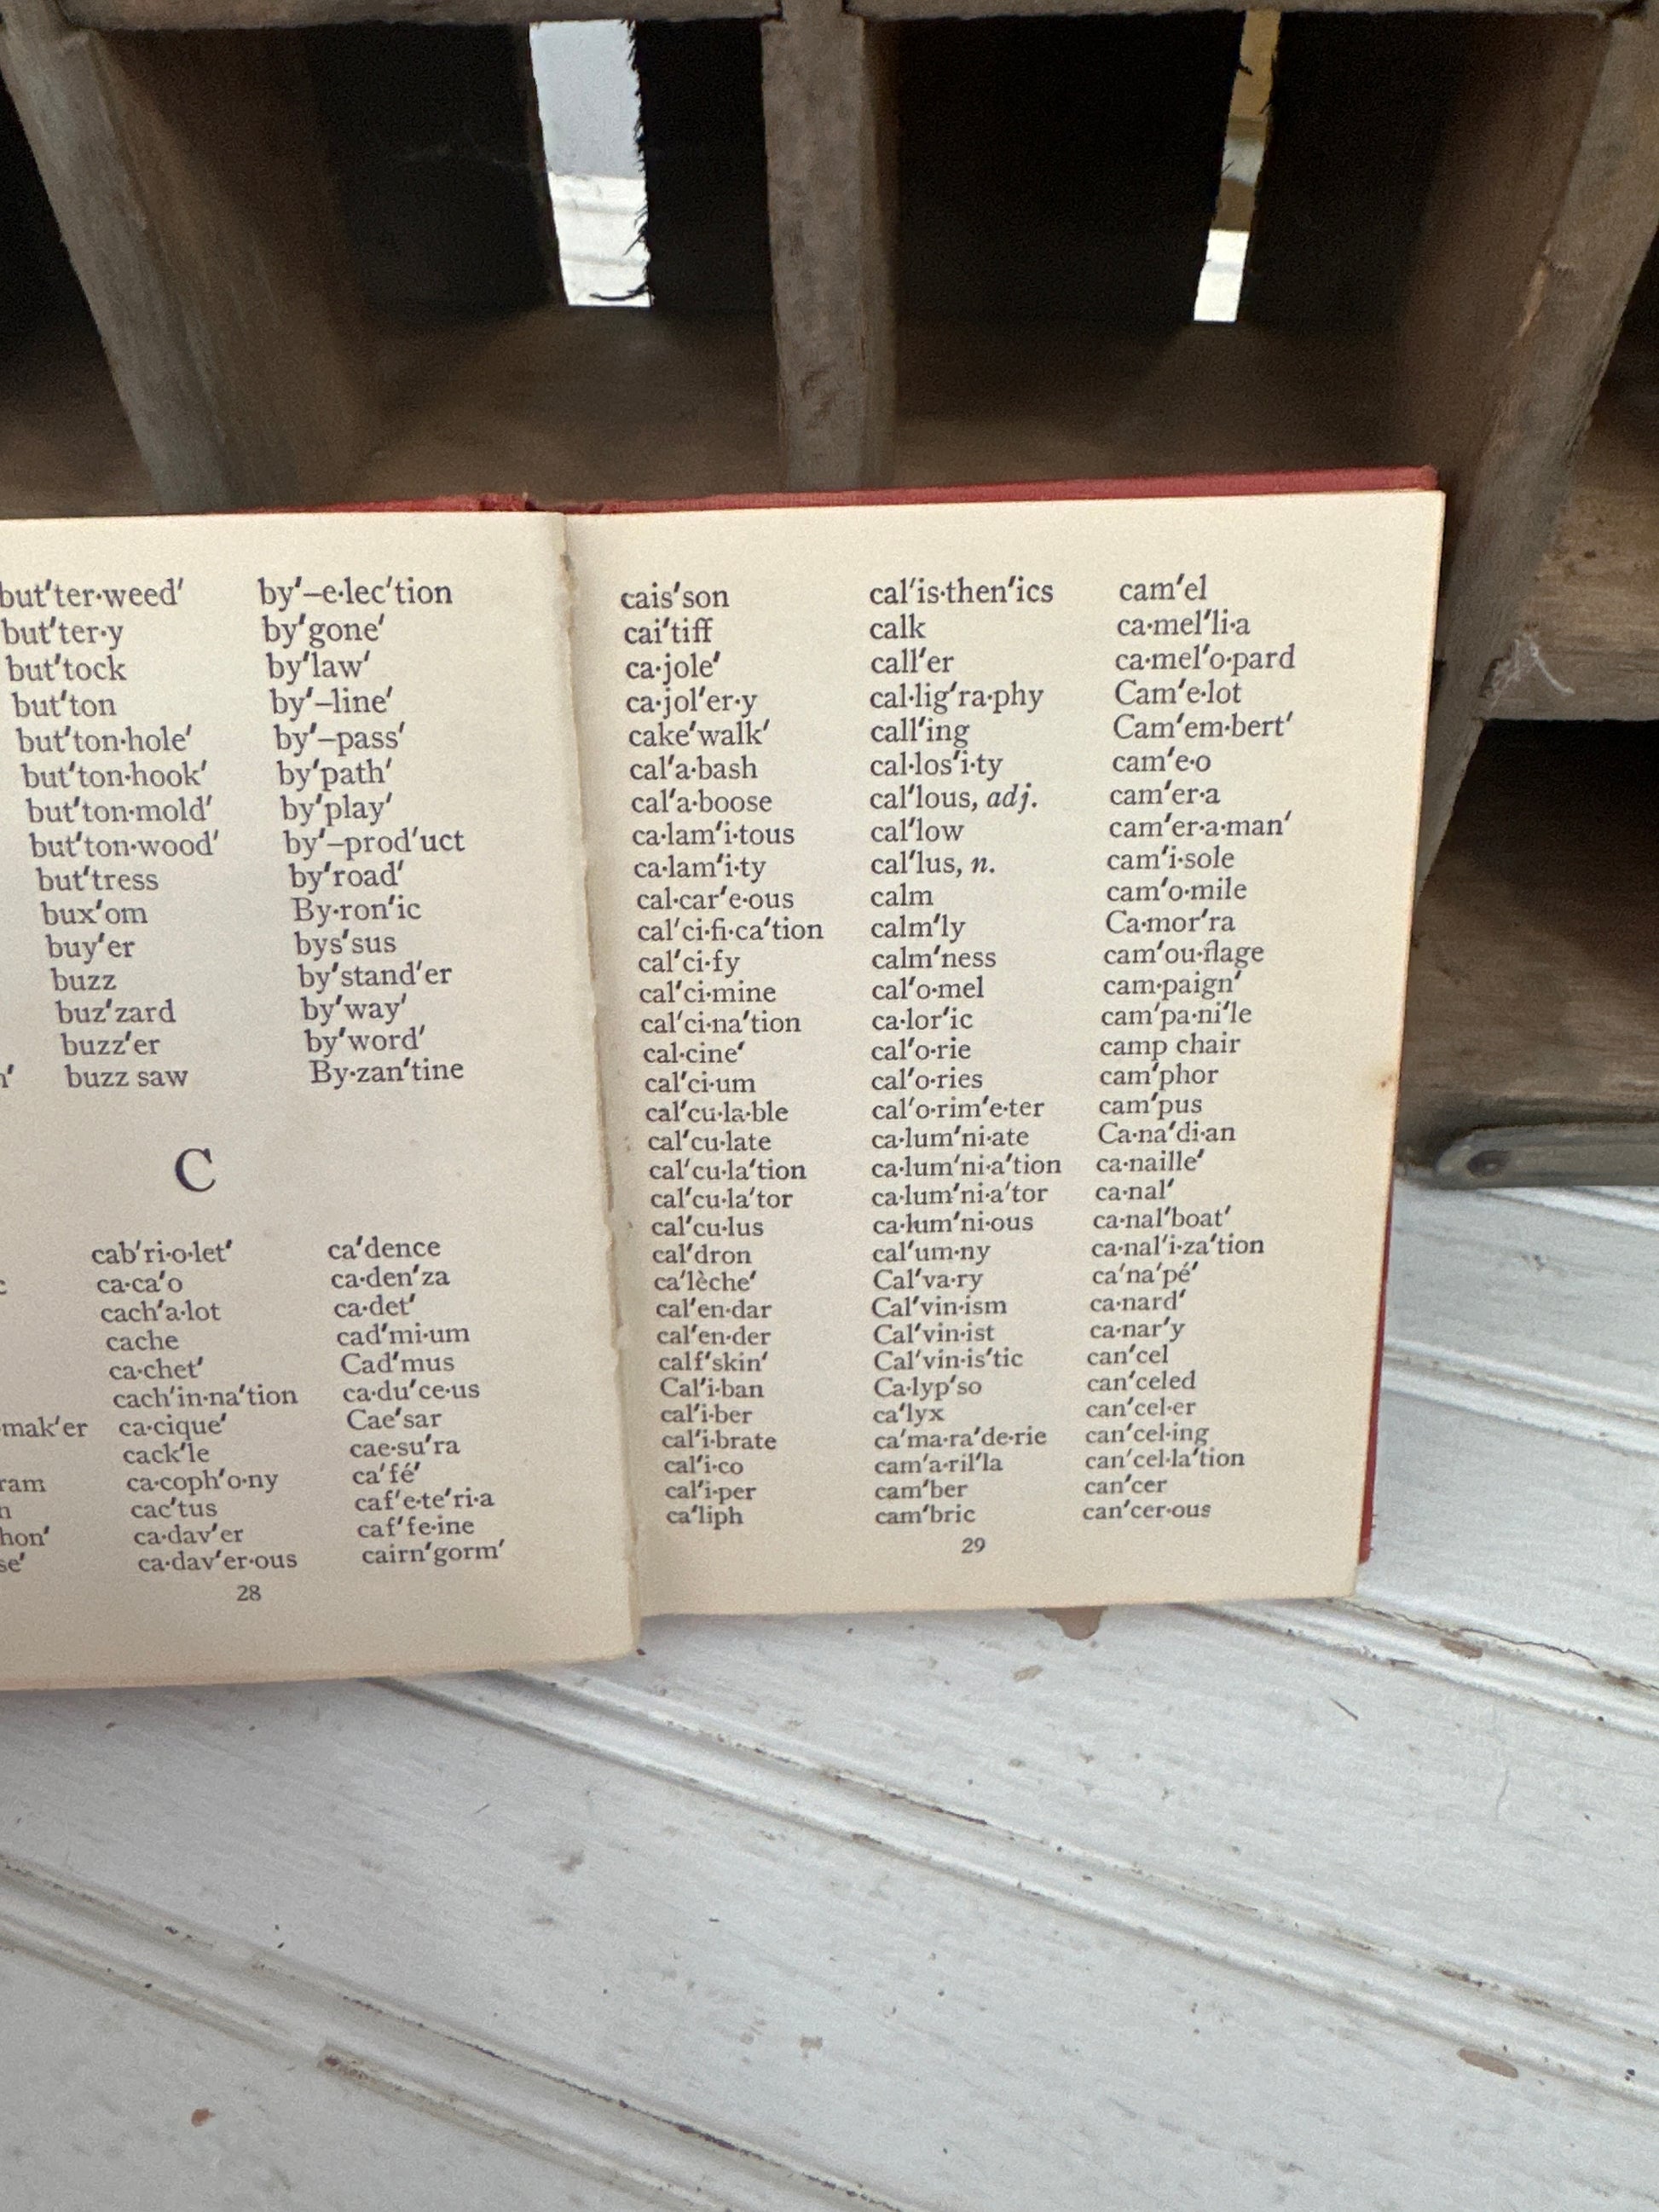 but′ter·weed′
but′ter·y
but′tock
but′ton
but′ton·hole′
but′ton·hook′
but′ton·mold′
but′ton·wood′
but′tress
bux′om
buy′er
buzz
buz′zard
buzz′er
buzz saw
by′–e·lec′tion
by′gone′
by′law′
by′–line′
by′–pass′
by′path′
by′play′
by′–prod′uct
by′road′
By·ron′ic
bys′sus
by′stand′er
by′way′
by′word′
By·zan′tine
C
mak′er
ram
hon′
se′
cab′ri·o·let′
ca·ca′o
cach′a·lot
cache
ca·chet′
cach′in·na′tion
ca·cique′
cack′le
ca·coph′o·ny
cac′tus
ca·dav′er
ca·dav′er·ous
ca′dence
ca·den′za
ca·det′
cad′mi·um
Cad′mus
ca·du′ce·us
Cae′sar
cae·su′ra
ca′fé′
caf′e·te′ri·a
caf′fe·ine
cairn′gorm′
28
cais′son
cai′tiff
ca·jole′
ca·jol′er·y
cake′walk′
cal′a·bash
cal′a·boose
ca·lam′i·tous
ca·lam′i·ty
cal·car′e·ous
cal′ci·fi·ca′tion
cal′ci·fy
cal′ci·mine
cal′ci·na′tion
cal·cine′
cal′ci·um
cal′cu·la·ble
cal′cu·late
cal′cu·la′tion
cal′cu·la′tor
cal′cu·lus
cal′dron
ca′lèche′
cal′en·dar
cal′en·der
calf′skin′
Cal′i·ban
cal′i·ber
cal′i·brate
cal′i·co
cal′i·per
ca′liph
cal′is·then′ics
calk
call′er
cal·lig′ra·phy
call′ing
cal·los′i·ty
cal′lous, adj.
cal′low
cal′lus, n.
calm
calm′ly
calm′ness
cal′o·mel
ca·lor′ic
cal′o·rie
cal′o·ries
cal′o·rim′e·ter
ca·lum′ni·ate
ca·lum′ni·a′tion
ca·lum′ni·a′tor
ca·lum′ni·ous
cal′um·ny
Cal′va·ry
Cal′vin·ism
Cal′vin·ist
Cal′vin·is′tic
Ca·lyp′so
ca′lyx
ca′ma·ra′de·rie
cam′a·ril′la
cam′ber
cam′bric
cam′el
ca·mel′li·a
ca·mel′o·pard
Cam′e·lot
Cam′em·bert′
cam′e·o
cam′er·a
cam′er·a·man′
cam′i·sole
cam′o·mile
Ca·mor′ra
cam′ou·flage
cam·paign′
cam′pa·ni′le
camp chair
cam′phor
cam′pus
Ca·na′di·an
ca·naille′
ca·nal′
ca·nal′boat′
ca·nal′i·za′tion
ca′na′pé′
ca·nard′
ca·nar′y
can′cel
can′celed
can′cel·er
can′cel·ing
can′cel·la′tion
can′cer
can′cer·ous
29